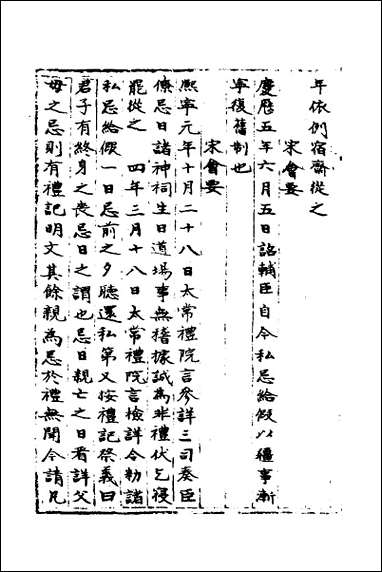 年依例宿齋從之
宋會要
慶歷五年六月五日詔輔臣自今私忌給假以彊事漸
寧復舊制也
宋會要
熙寧元年十月二十八日太常禮院言參詳三司奏臣
僚忌日諸神祠生日道場事無稽據誠為非禮伏乞寢
罷從之 四年三月十八日太常禮院言檢詳令勑諸
私忌給假一日忌前之夕聽還私第又按禮記祭義曰
君子有終身之喪忌日之謂也忌日親亡之日看詳父
母之忌則有禮記明文其餘親為忌於禮無聞今請凡